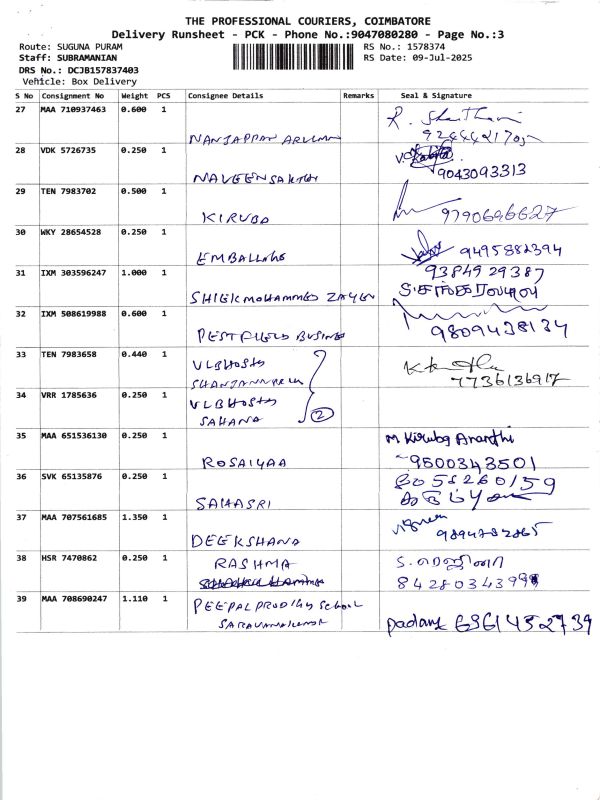 THE PROFESSIONAL COURIERS, COIMBATORE
Delivery Runsheet - PCK - Phone No.:9047080280 - Page No.:3
Route: SUGUNA PURAM
RS No.: 1578374
Staff: SUBRAMANIAN
RS Date: 09-Jul-2025
DRS No.: DCJB157837403
Vehicle: Box Delivery
S No Consignment No Weight PCS Consignee Details Remarks Seal & Signature
27 MAA 710937463 0.600 1
NANJAPPAN
28 VDK 5726735 0.250 1
NAVEENSAKTHI 9043093313
29 TEN 7983702 0.500 1
KIRUBA 9790696627
30 WKY 28654528 0.250 1
9495882394
31 IXM 303596247 1.000 1 9384929387
SHIEKMOHAMMED ZAYEN
32 IXM 508619988 0.600 1
PESTFIELD BUSINES 9809438134
33 TEN 7983658 0.440 1 VLBHOSTS
7736136917
34 VRR 1785636 0.250 1 VLBHOSTS
SAHANA 2
35 MAA 651536130 0.250 1 M Kiruba Ananthi
ROSAIYAA 9500343501
36 SVK 65135876 0.250 1 8056260159
SAHASRI
37 MAA 707561685 1.350 1
DEEKSHANA 9894782865
38 HSR 7470862 0.250 1 RASHMA
39 MAA 708690247 1.110 1 PEEPAL PRODIGY School
6361452739